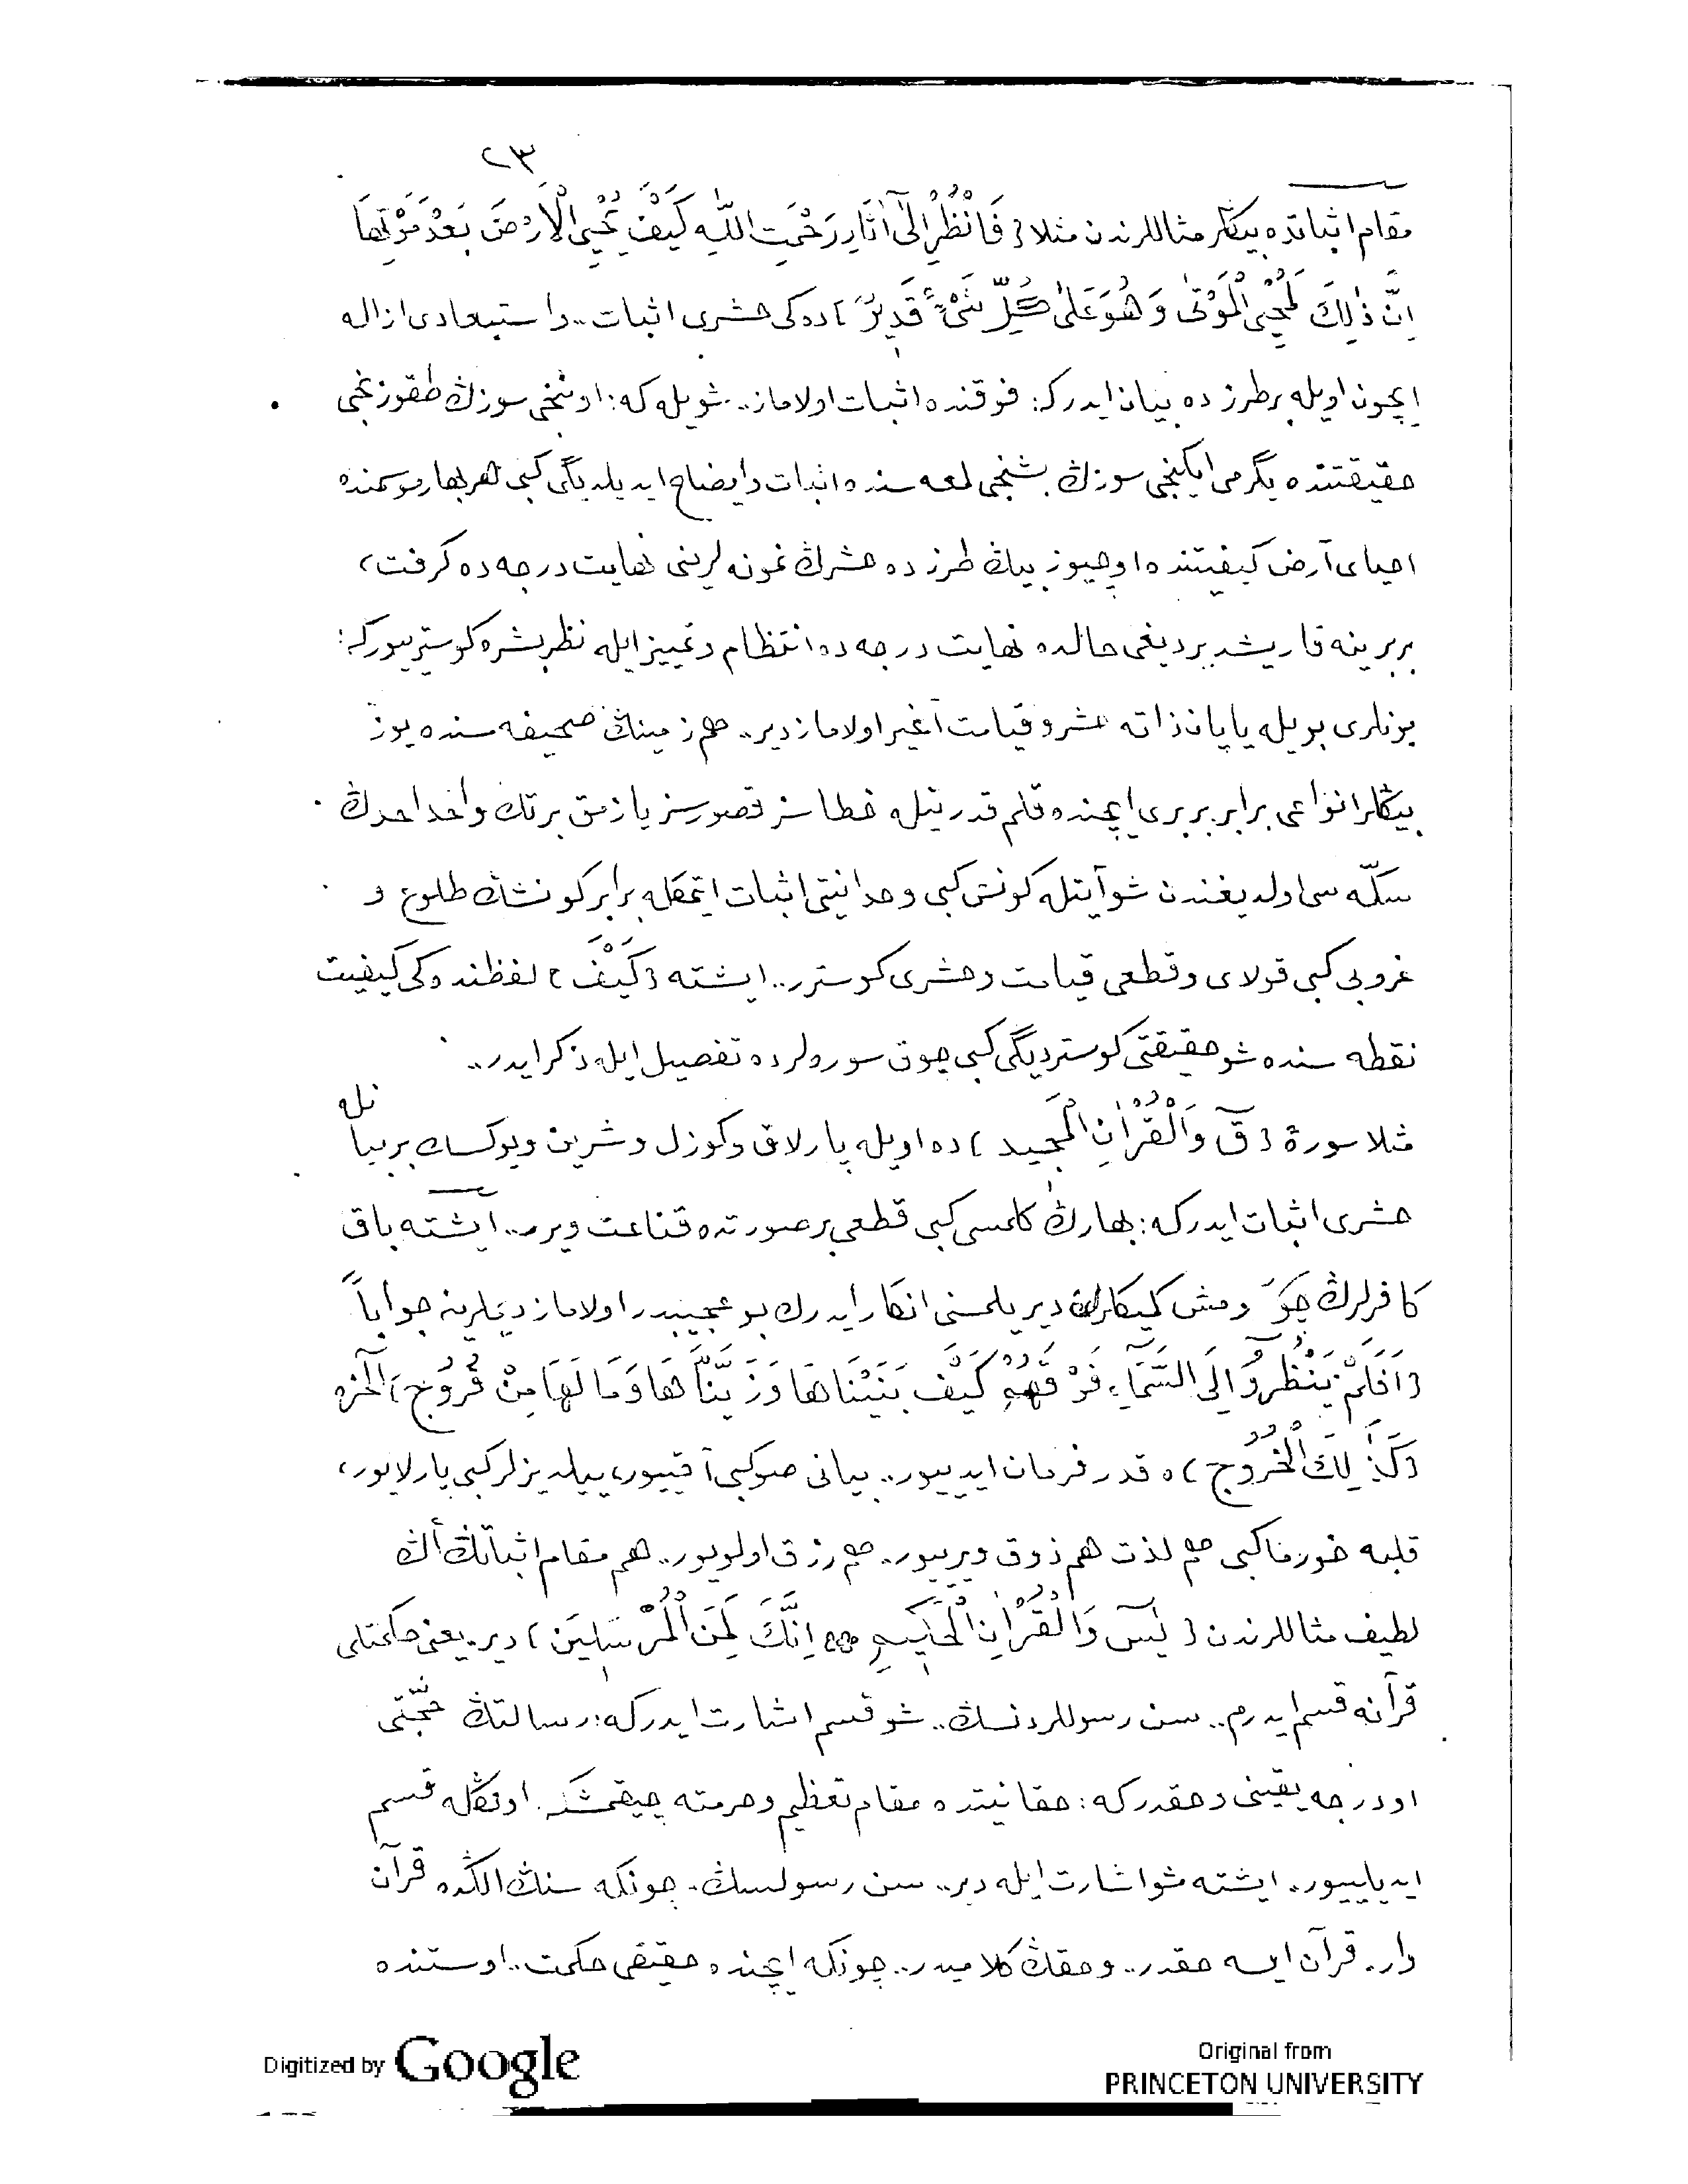 ٢٣
مقام اثباتده بیڭلر مثاللرندن مثلا ﴿ فَانْظُرْ اِلٰٓى اٰثَارِ رَحْمَتِ اللّٰهِ كَيْفَ يُحْيِى الْاَرْضَ بَعْدَ مَوْتِهَا
اِنَّ ذٰلِكَ لَمُحْيِى الْمَوْتٰى وَهُوَ عَلٰى كُلِّ شَىْءٍ قَدِيرٌ ﴾ ده‌كی حشری اثبات.. و استبعادی ازاله
ایچون اویله بر طرزده بیان ایدر كه: فوقنده اثبات اولاماز.. شویله كه: اوننجی سوزڭ طقوزنجی
حقیقتنده یگرمی ایكینجی سوزڭ بشنجی لمعه سنده اثبات و ایضاح ایدیلدیگی كبی هر بهار موسمنده
احیای آرض كیفیتنده اوچیوز بیڭ طرزده حشرڭ نمونه لرینی نهایت درجه ده كرفت،
بربرینه قاریشدیردیغی حالده نهایت درجه ده انتظام و تمییز ایله نظر بشره كوستریبور كه:
بونلری بویله یاپان ذاته حشر و قیامت آغیر اولاماز دیر.. هم زمینڭ صحیفه سنده یوز
بیڭلر انواعی برابر بربری ایچنده قلم قدرتیله خطاسز قصورسز یازمق بر تك واحد احدڭ
سكّه سی اولدیغندن شو آیتله كونش كبی وحدانیتی اثبات ایتمكله برابر كونشڭ طلوع و
غروبی كبی قولای و قطعی قیامت و حشری كوسترر.. ایشته ﴿ كَيْفَ ﴾ لفظنده كی كیفیت
نقطه سنده شو حقیقتی كوستردیگی كبی چوق سوره لرده تفصیل ایله ذكر ایدر..
مثلا سورۀ ﴿ قٓ وَالْقُرْاٰنِ الْمَجِيدِ ﴾ ده اویله پارلاق و كوزل و شرین و یوكسك بر بیا
نله
حشری اثبات ایدر كه: بهارڭ كلمسی كبی قطعی بر صورتده قناعت ویرر.. ایشته باق
كافرلرڭ چورومش كمیكلرڭ دیریلمسنی انكار ایدرك بو عجیبدر اولاماز دیملرینه جواباً
﴿ اَفَلَمْ يَنْظُرُوٓا اِلَى السَّمَٓاءِ فَوْقَهُمْ كَيْفَ بَنَيْنَاهَا وَزَيَّنَّاهَا وَمَا لَهَا مِنْ فُرُوجٍ ﴾ الخره
﴿ كَذٰلِكَ الْخُرُوجُ ﴾ ه قدر فرمان ایدییور.. بیانی صو كبی آقییور، ییلدیزلر كبی پارلایور،
قلبه خورما كبی هم لذت هم ذوق ویرییور.. هم رزق اولویور.. هم مقام اثباتڭ أڭ
لطیف مثاللرندن ﴿ يٰسٓ وَالْقُرْاٰنِ الْحَكِيمِ اِنَّكَ لَمِنَ الْمُرْسَلِينَ ﴾ دیر. یعنی حكمتلی
قرآنه قسم ایدرم.. سن رسوللردنسڭ.. شو قسم اشارت ایدر كه: رسالتڭ حجّتی
او درجه یقینی و حقدر كه: حقانیتده مقام تعظیم و حرمته چیقمشكه اونڭله قسم
ایدیلییور. ایشته شو اشارت ایله دیر.. سن رسولسڭ. چونكه سنڭ الڭده قرآن
وار. قرآن ایسه حقدر.. و حقڭ كلامیدر.. چونكه ایچنده حقیقی حكمت.. اوستنده
Digitized by Google
Original from
PRINCETON UNIVERSITY